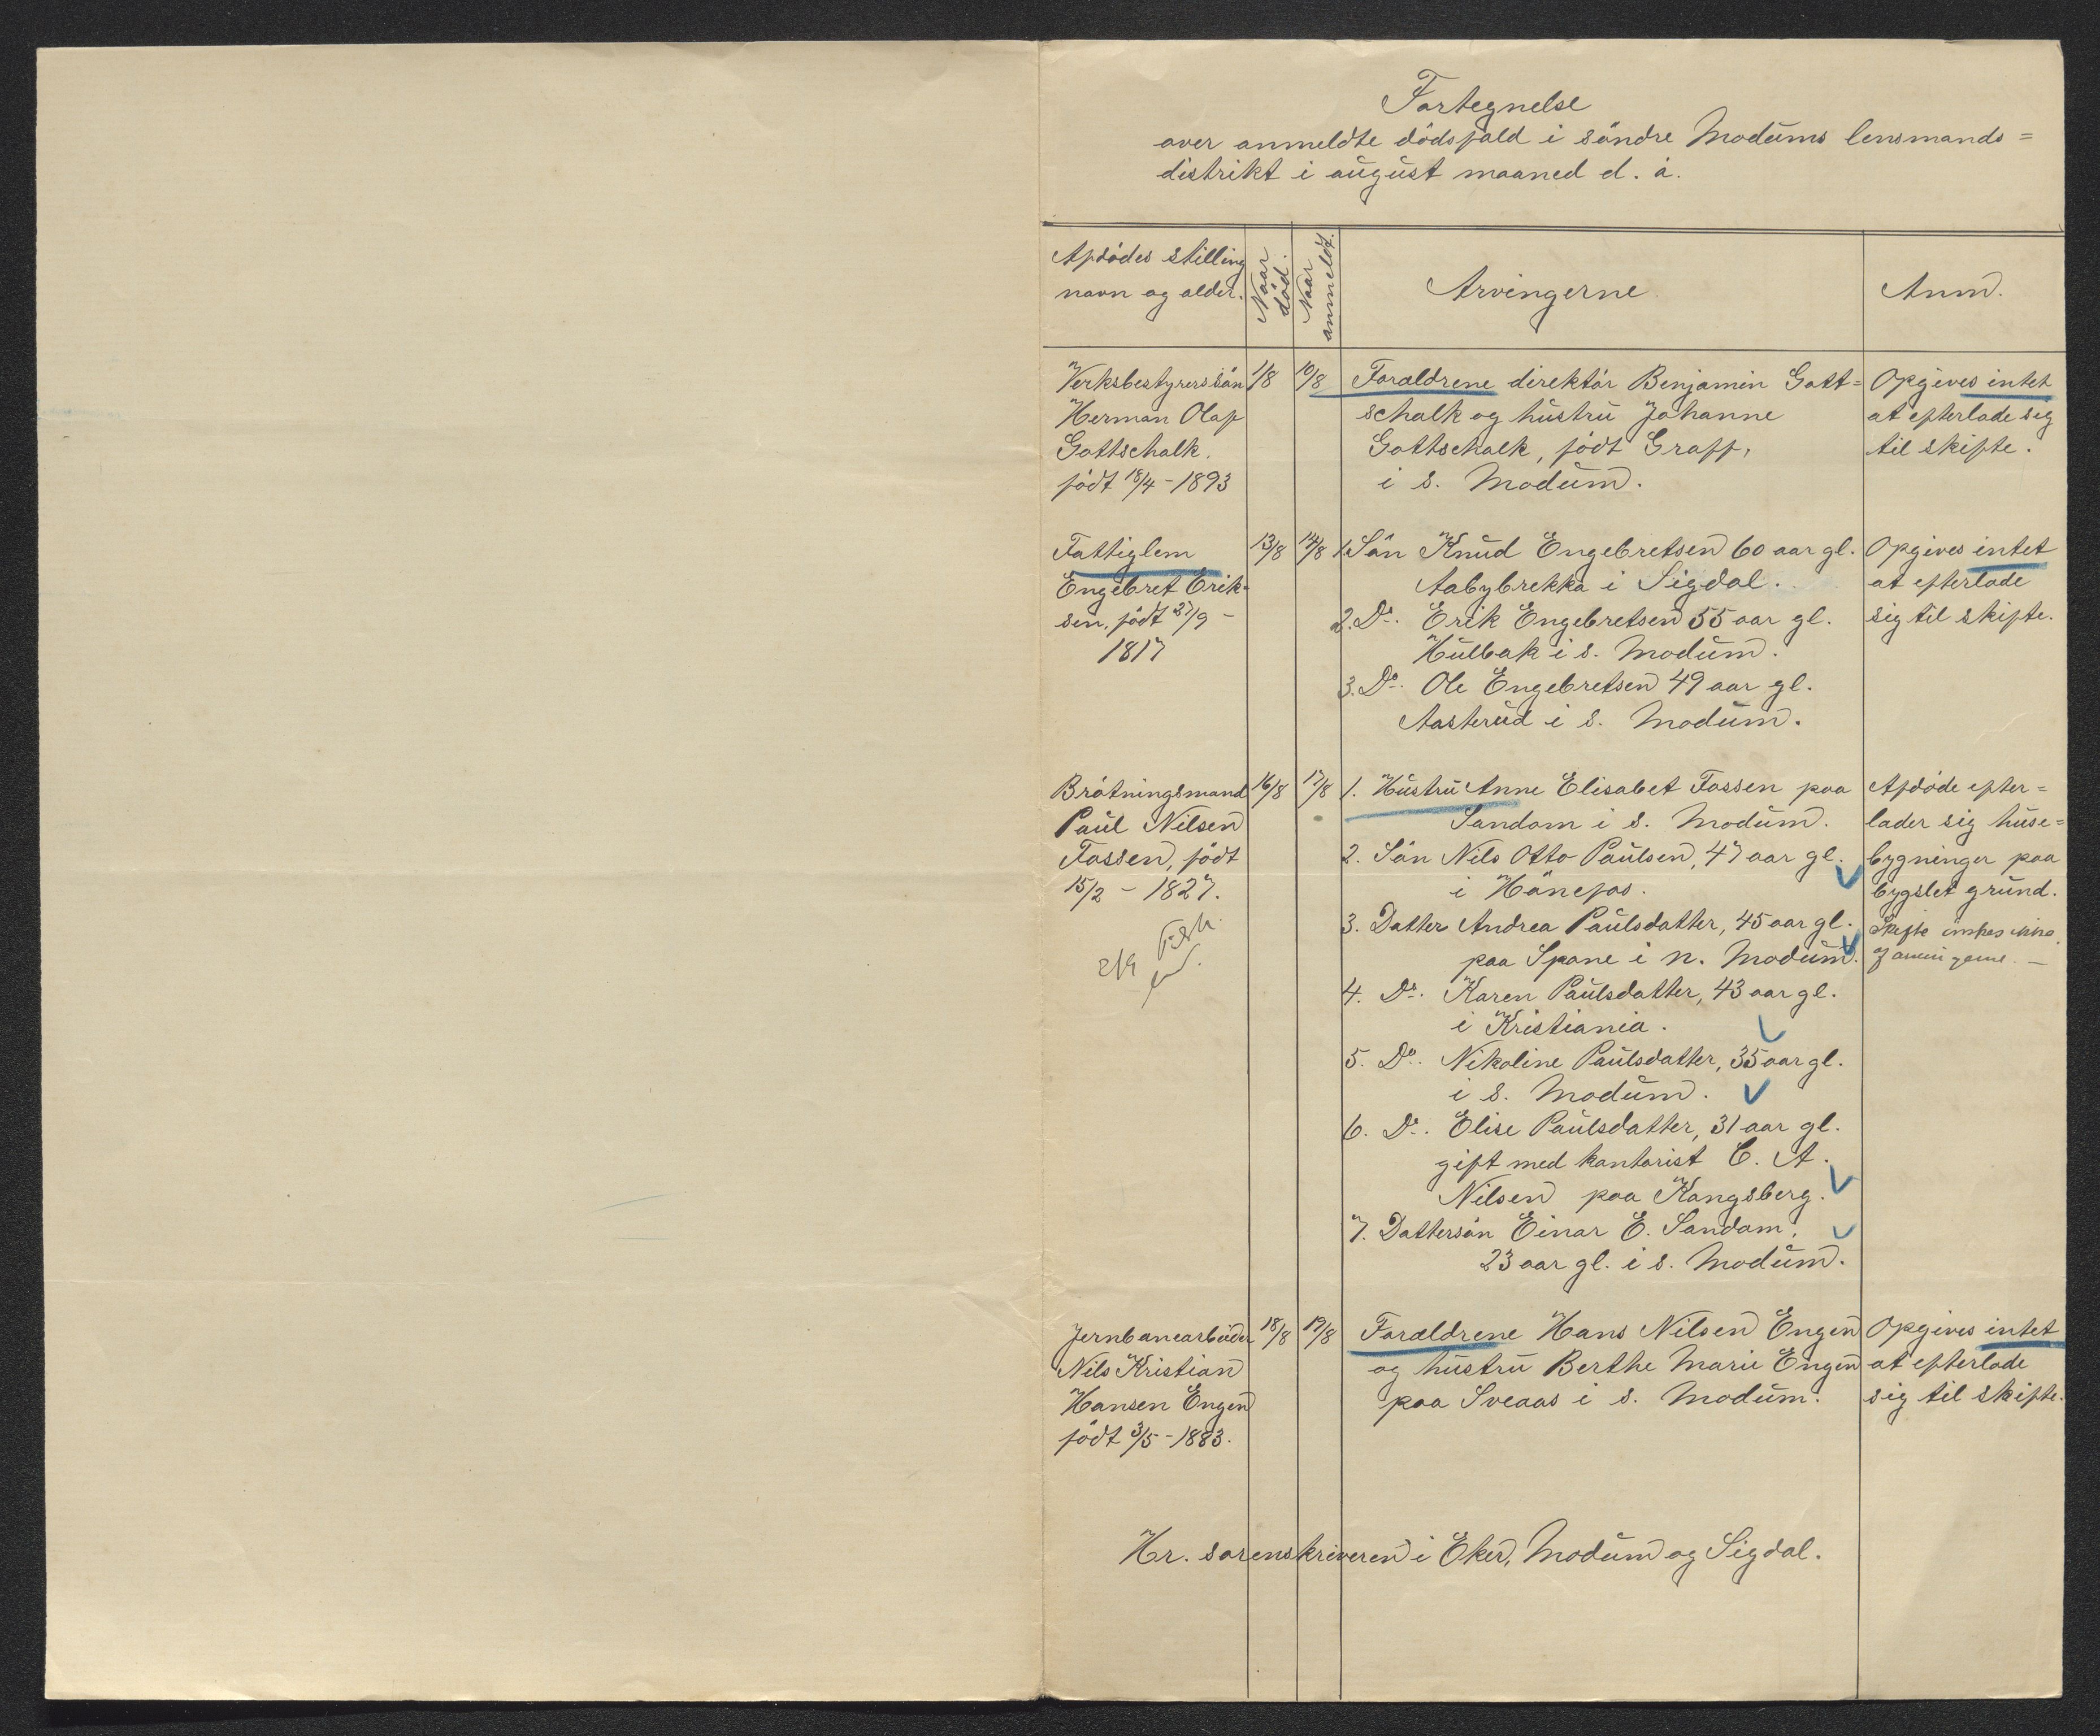 Fortegnelse
over anmeldte dödsfald i söndre Modums lensmands=
distrikt i august maaned d. å.
Afdödes stilling
navn og alder.
Naar
död.
Naar
anmeldt.
Arvingerne
Anm.
Verksbestyrerssön
Herman Olaf
Gottschalk.
född 18/4 - 1893
1/8
10/8
Forældrene direktör Benjamin Gott=
schalk og hustru Johanne
Gottschalk, född Graff,
i s. Modum.
Opgives intet
at efterlade sig
til skifte.
Fattiglem
Engebret Erik-
sen, födt 27/9 -
1817
13/8
14/8
1. Sön Knud Engebretsen 60 aar gl.
Aabybrekka i Sigdal.
2. Do. Erik Engebretsen 55 aar gl.
Hulbak i s. Modum.
3. Do. Ole Engebretsen 49 aar gl.
Aasterud i s. Modum.
Opgives intet
at efterlade
sig til skifte.
Bråtningsmand
Paul Nilsen
Fossen, födt
15/2 - 1827.
2/9
16/8
17/8
1. Hustru Anne Elisabet Fossen paa
Sandom i s. Modum.
2. Sön Nils Otto Paulsen, 47 aar gl.
i Hönefos.
3. Datter Andrea Paulsdatter, 45 aar gl.
paa Spone i n. Modum.
4. Do. Karen Paulsdatter, 43 aar gl.
i Kristiania.
5. Do. Nikoline Paulsdatter, 35 aar gl.
i s. Modum.
6. Do. Elise Paulsdatter, 31 aar gl.
gift med kontorist C. A.
Nilsen paa Kongsberg.
7. Dattersön Einar E. Sandom,
23 aar gl. i s. Modum.
Afdöde efter=
lader sig huse=
bygninger paa
bygslet grund.
Skifte önskes ikke
af arvingerne. —
Jernbanearbeider
Nils Kristian
Hansen Engen
födt 3/5 - 1883.
18/8
19/8
Forældrene Hans Nilsen Engen
og hustru Berthe Marie Engen
paa Sveaas i s. Modum.
Opgives intet
at efterlade
sig til skifte.
Hr. sorenskriveren i Eker, Modum og Sigdal.